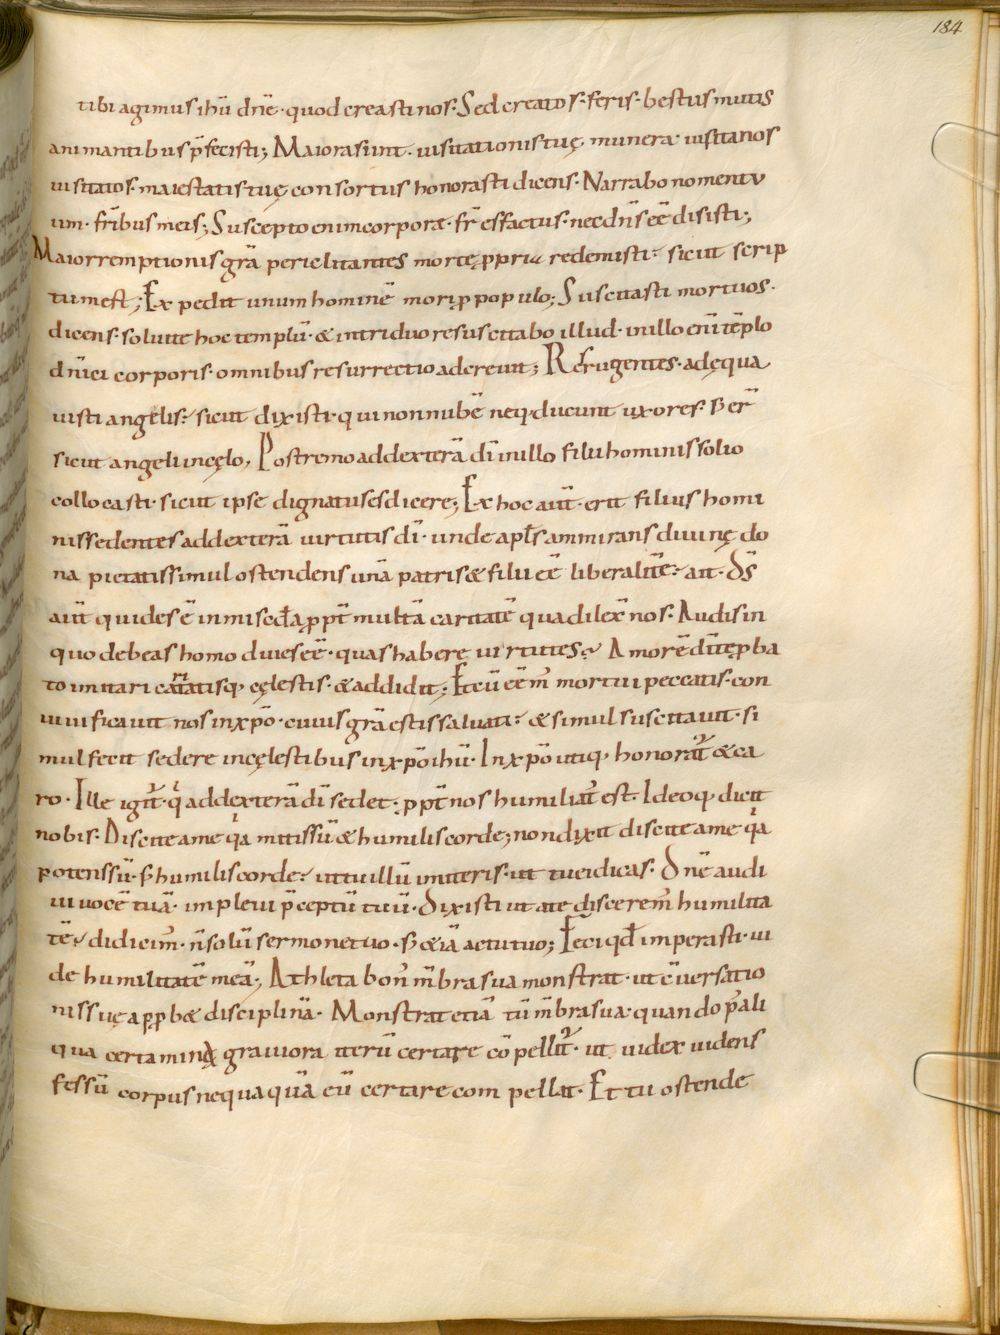 184
tibi agimus ihū dnē · quod creasti nos · Sed creatos · feris · bestiis mutis
animantibus p̄fecisti; Maiora sunt · uisitationis tuę munera · uisitanos
uisitatos · maiestatis tuę consortiis honorasti dicens · Narrabo nomen tu
um · fr̄ibus meis; Suscepto enim corpore · fr̄ es factus · nec dn̄s eē disisti;
Maior remptionis grā periclitantes morte ꝓpria redemisti · sicut scrip
tum est; Expedit unum hominē mori ꝓ populo; Suscitasti mortuos ·
dicens · soluite hoc templū · & in triduo resuscitabo illud · in illo enī tēplo
dn̄ici corporis · omnibus resurrectio adcreuit; Resurgentes · adequa
uisti angelis · sicut dixisti · qui non nubē neq· ducunt uxores · s; er̄
sicut angeli in cęlo, Postremo ad dexterā dī in illo filii hominis solio
collocasti · sicut ipse dignatus es dicere; Ex hoc aūt · erit filius homi
nis sedentes ad dexterā uirtutis dī · unde apl̄s ammirans diuinę do
na pietatis simul ostendens unā patris & filii eē liberalitē · ait · d̄s
aūt qui dies ē in mised̄a ꝓpt̄ multā caritatē qua dilex̄ nos · Audis in
quo debeas homo diues eē · quas habere uirtutes · Amorē dī tēꝑba
to imitari caritatis q· cęlestis · & addidit; Et cū eēm̄ mortui peccatis · con
uiuificauit nos in xp̄o · cuius grā estis saluati · & simul suscitauit · si
mul fecit sedere in cęlestibus in xp̄o ihū · In xp̄o utiq· honorat̄ & ca
ro · Ille igit̄ · qi ad dexterā dī sedet · ꝓpt̄ nos humiliat̄ est · Ideoq· dicit
nobis · Discite a me qia mitis sū & humilis corde; non dixit discite a me qia
potens sū · s; humilis corde · ut tu illū imiteris · ut tu ei dicas · Dn̄e audi
ui uocē tuā · impleui p̄ceptū tuū · Dixisti ut a te discerem̄ humilita
tē · didicim̄ · n̄ solū sermone tuo · s; & iā actu tuo; Feci qd̄ imperasti · ui
de humilitatē meā; Athleta bon̄ m̄bra sua monstrat · ut c̄uersatio
nis suę aꝓbet disciplinā · Monstrat etiā tū m̄bra sua · quando p̄ ali
qua certamina grauiora iterū certare cō pellit̄ · ut iudex uidens
fessū corpus nequaquā eū certare compellat · Et tu ostende